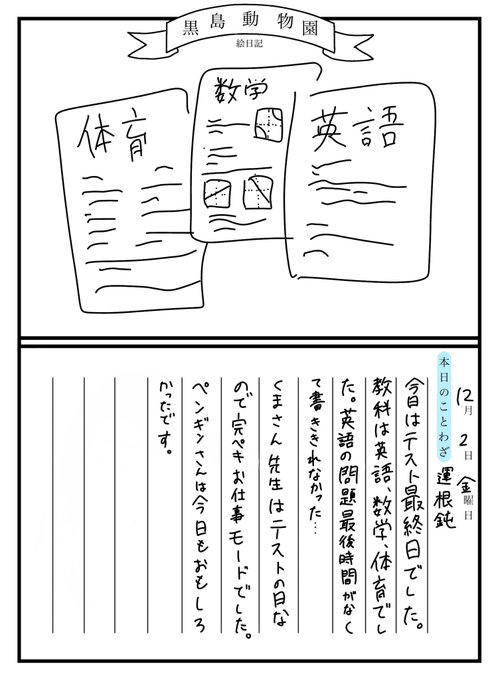 黒島動物園
絵日記
体育
数学
英語
12月2日金曜日
本日のことわざ 運根鈍
今日はテスト最終日でした。
教科は英語、数学、体育でし
た。英語の問題最後時間がなく
て書ききれなかった…
くまさん先生はテストの日な
ので完ペキお仕事モードでした。
ペンギンさんは今日もおもしろ
かったです。